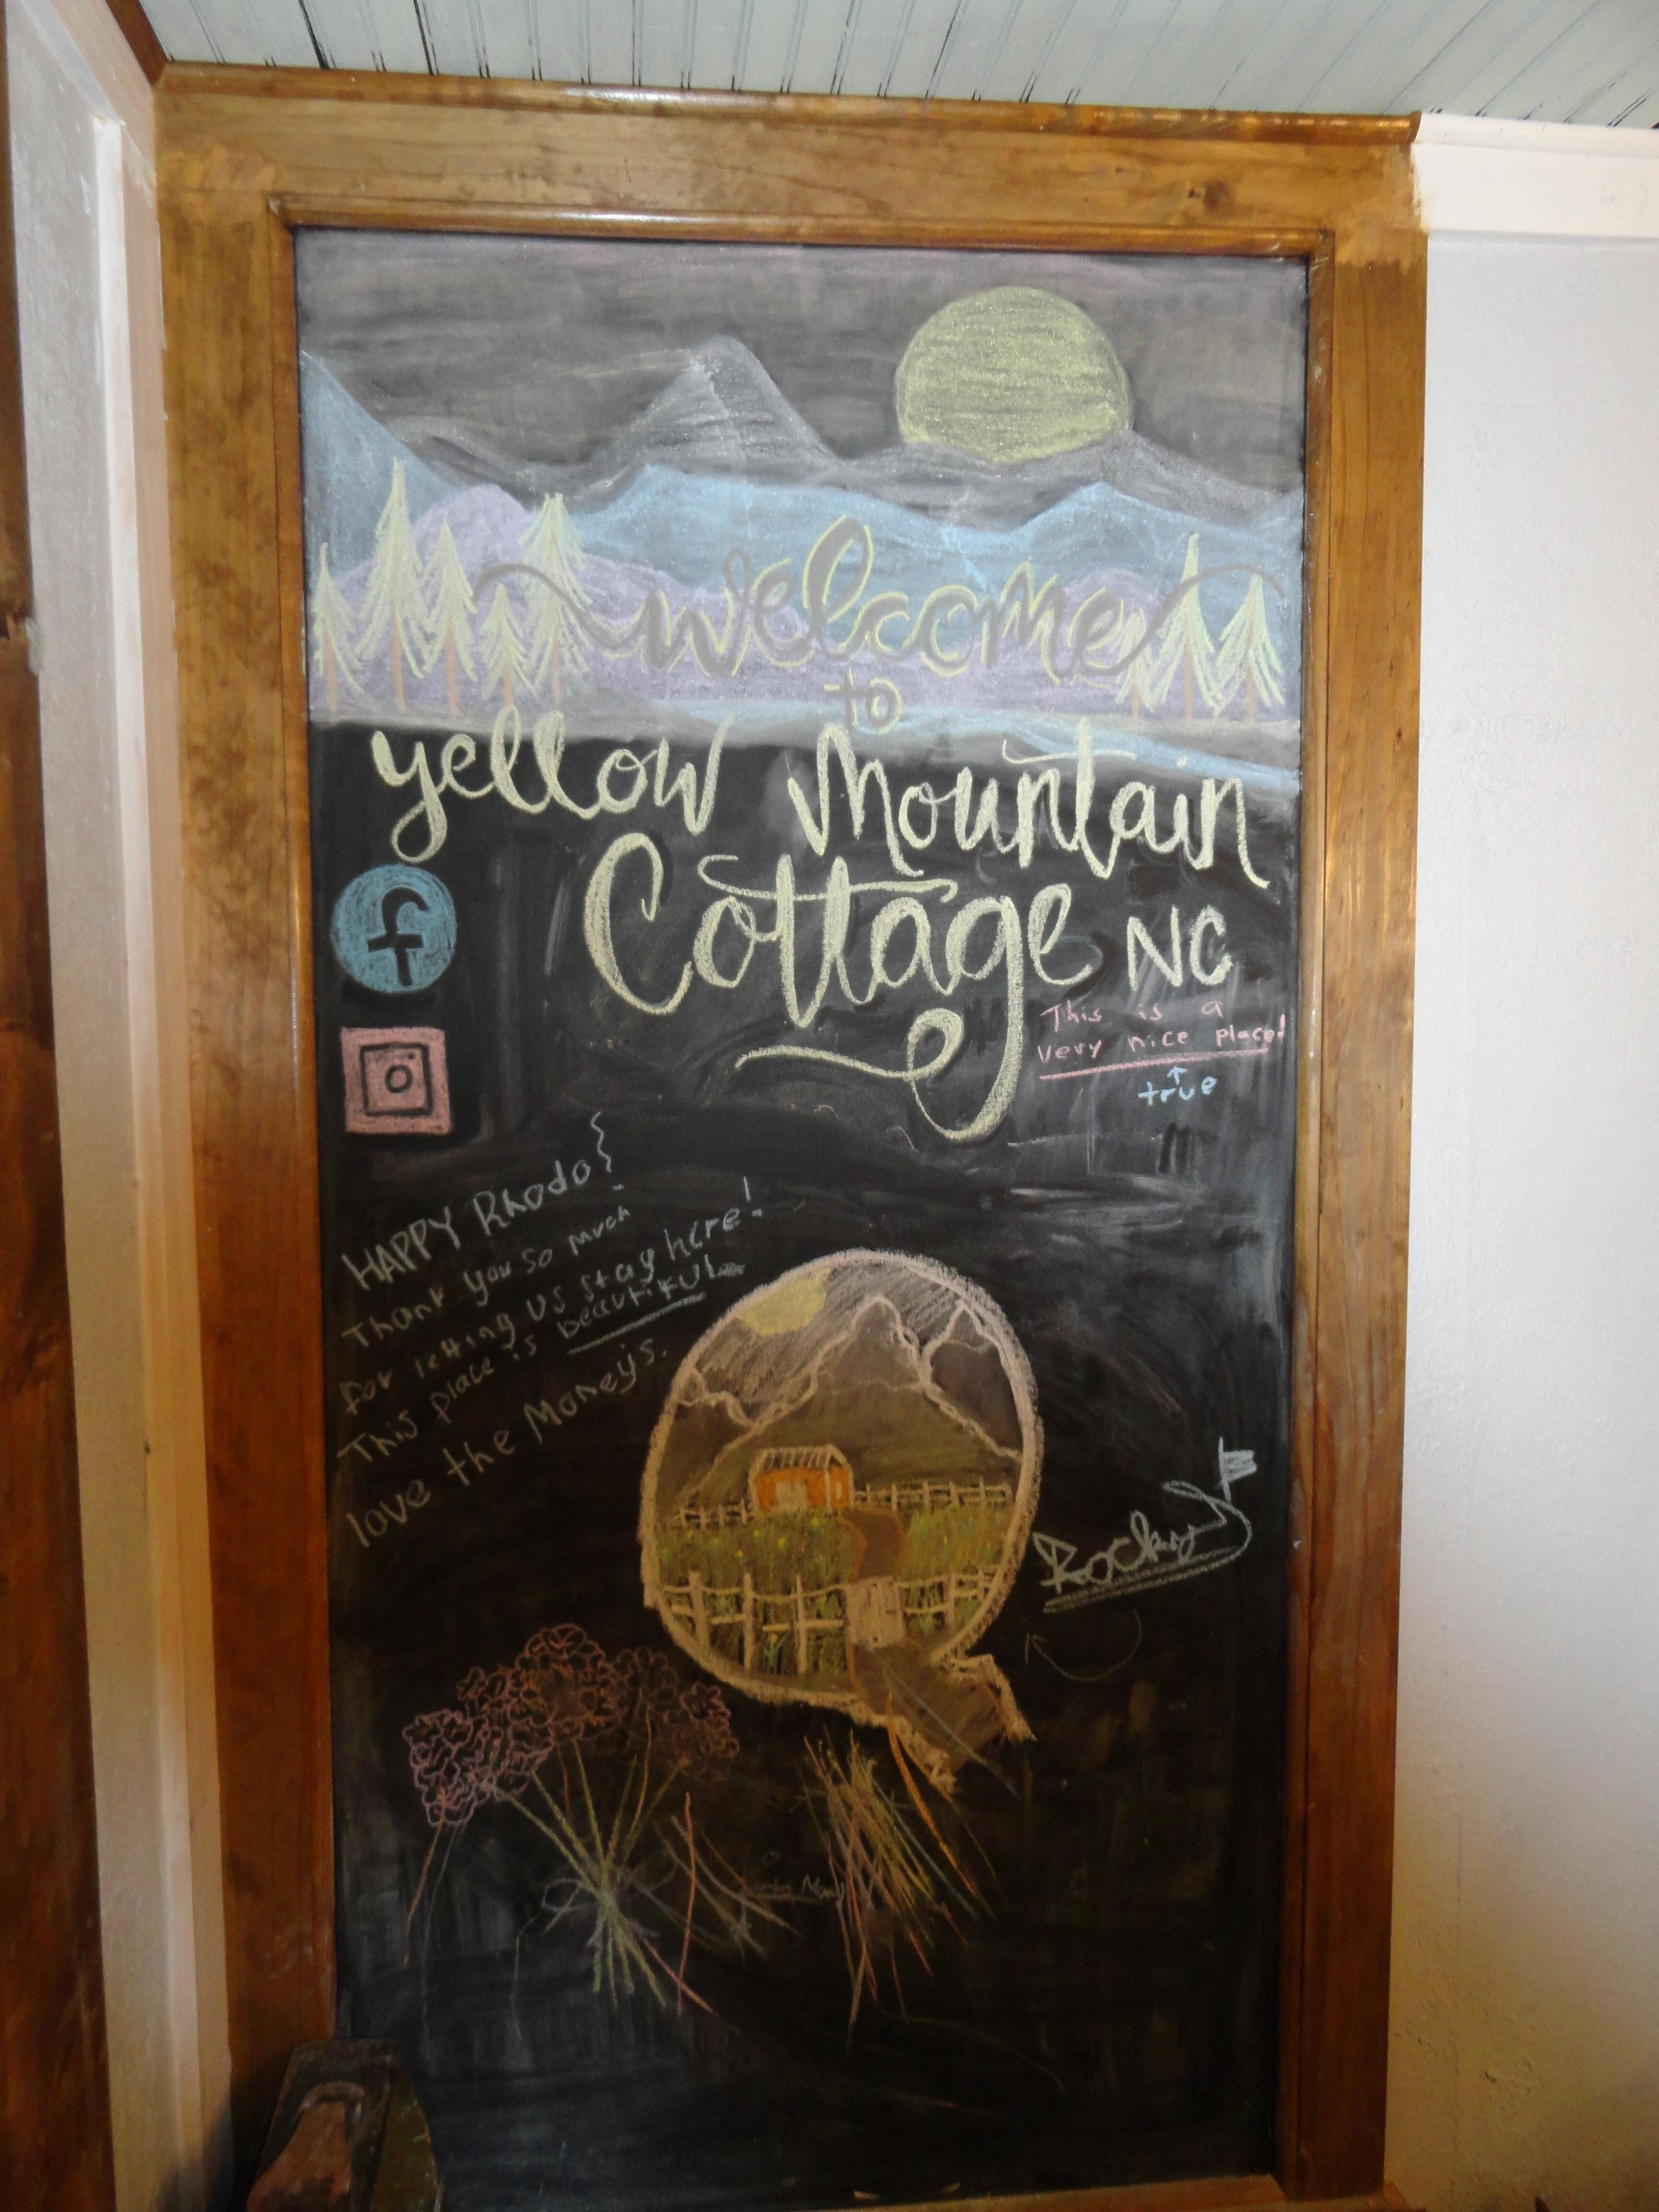 welcome
to
yellow Mountain
Cottage NC
This is a
very nice place!
true
HAPPY Rhodo
Thank you so much
for letting us stay here!
This place is beautiful
love the Money's.
Rocky